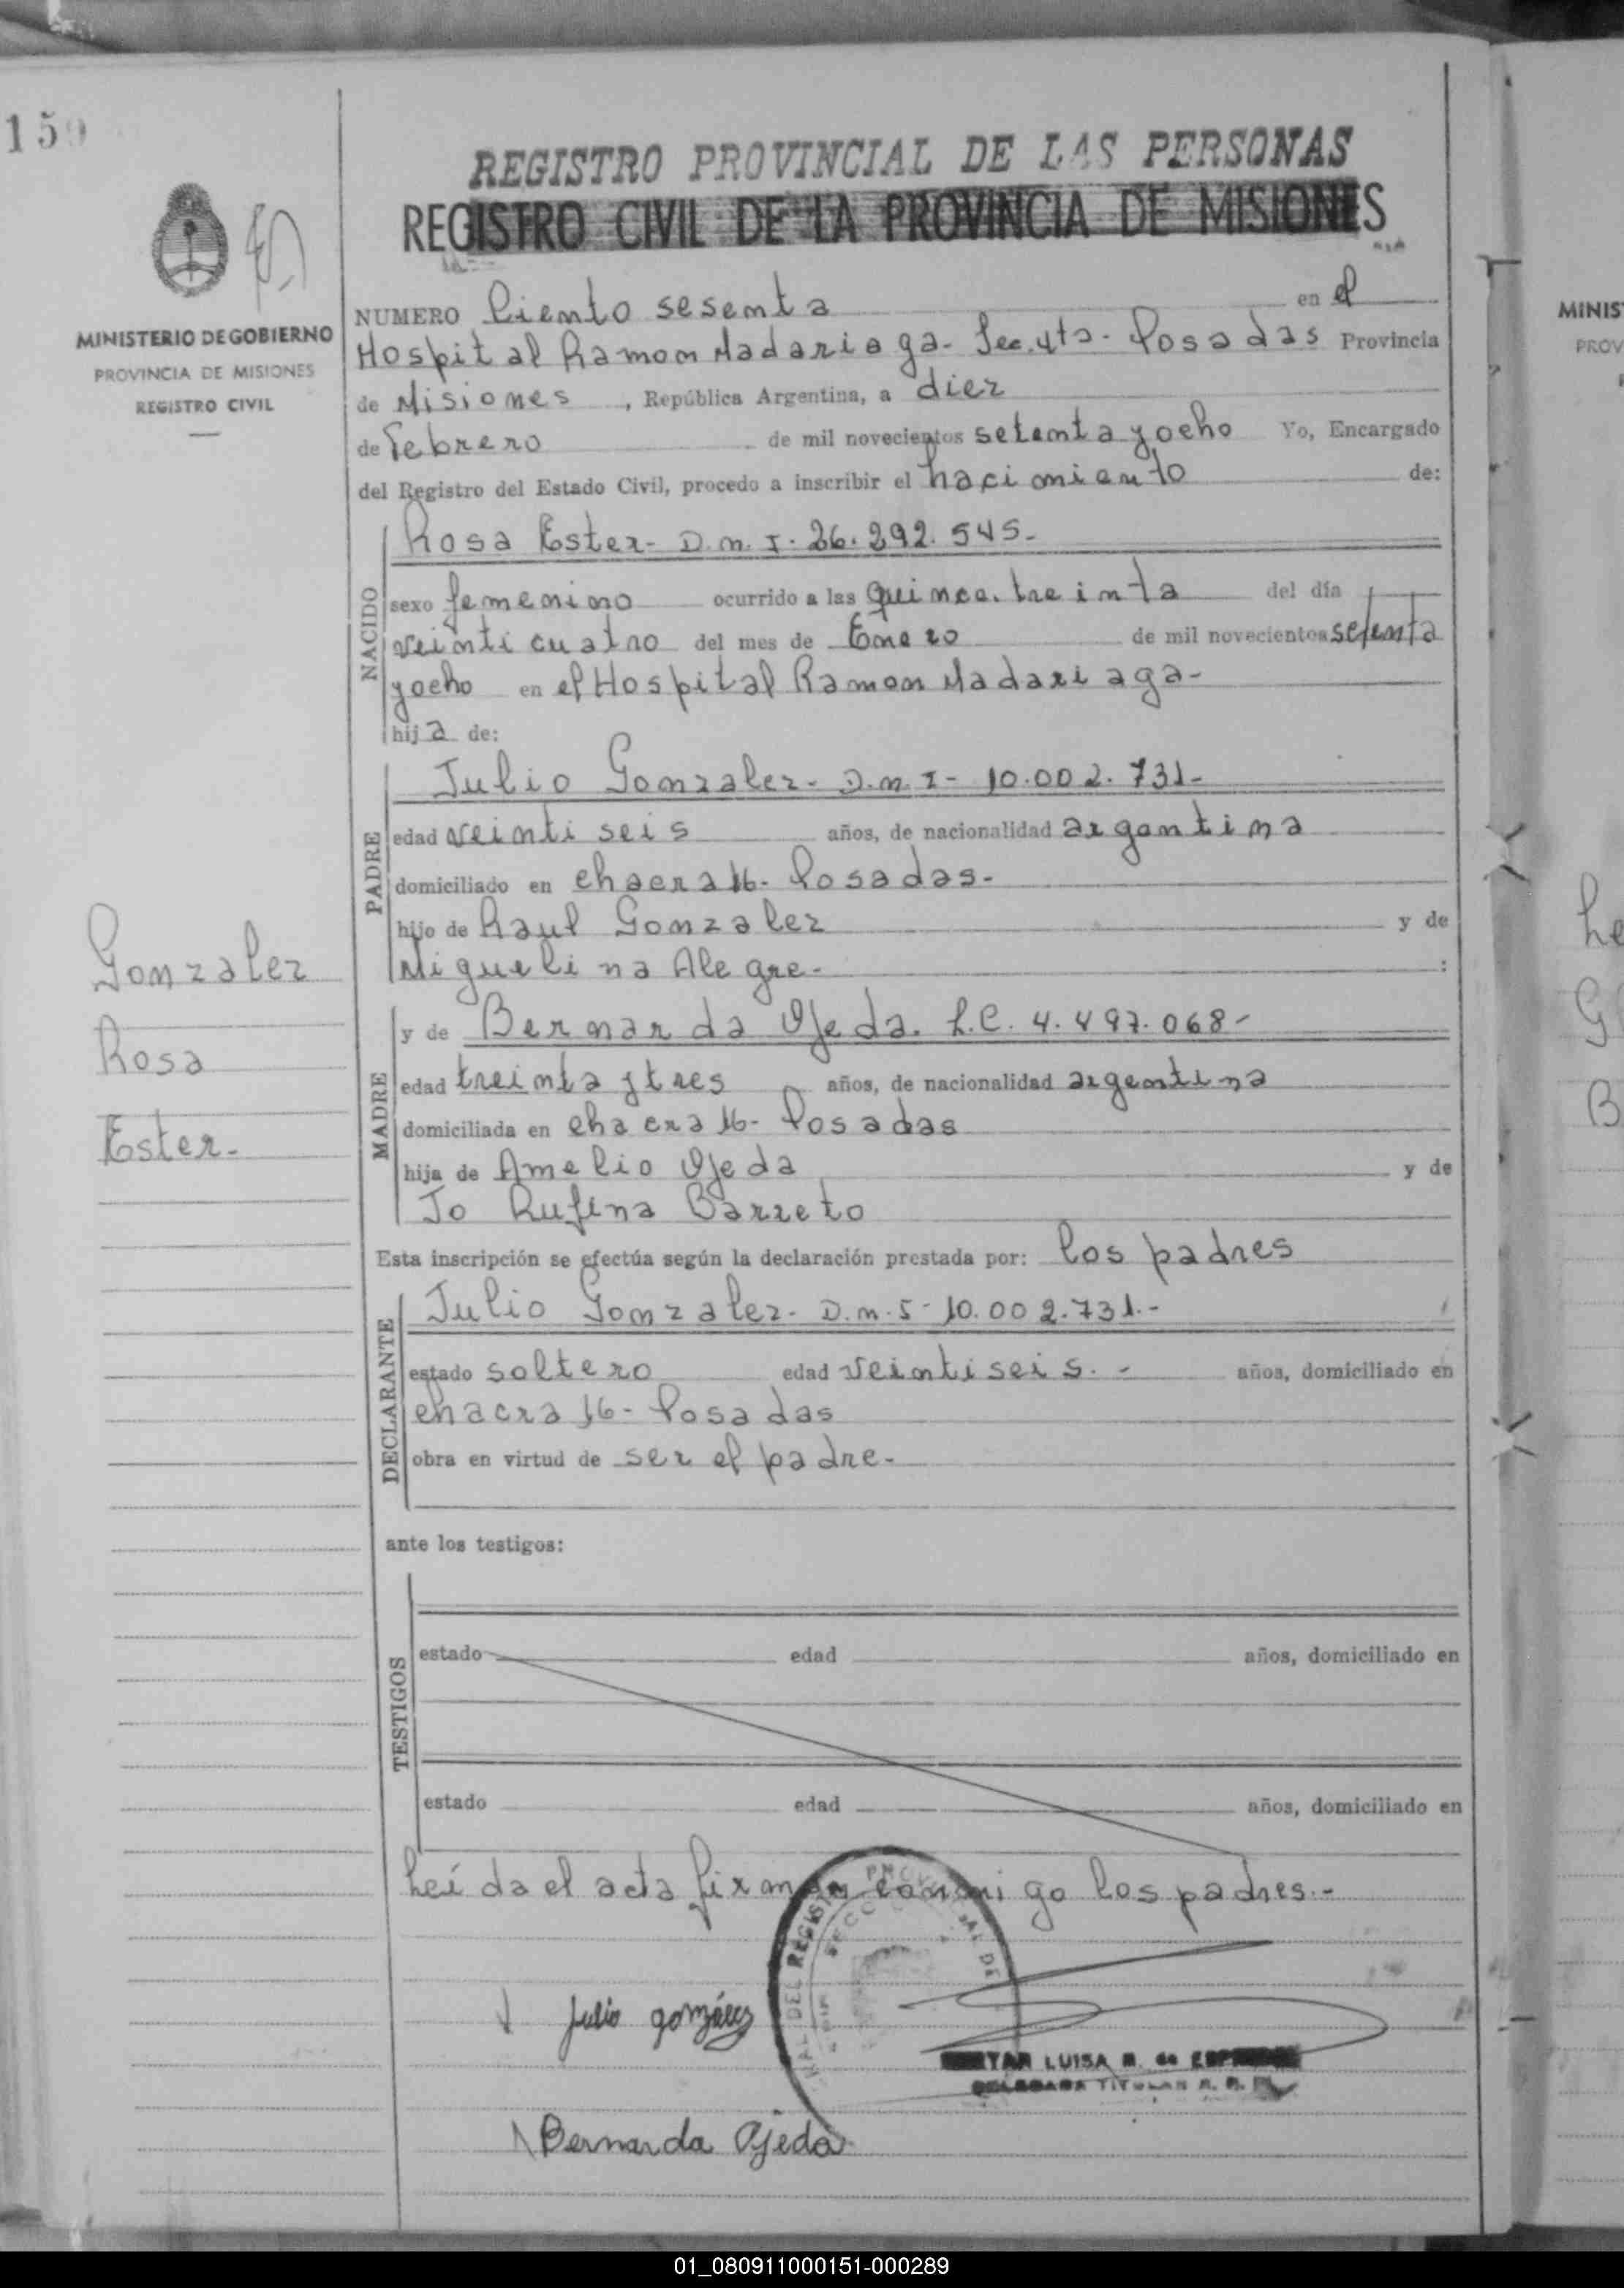 159
REGISTRO PROVINCIAL DE LAS PERSONAS
REGISTRO CIVIL DE LA PROVINCIA DE MISIONES
MINISTERIO DE GOBIERNO
PROVINCIA DE MISIONES
REGISTRO CIVIL
NUMERO Ciento sesenta en el
Hospital Ramon Madariaga- Sec. 4ta- Posadas Provincia
de Misiones, República Argentina, a diez
de Febrero de mil novecientos setenta y ocho Yo, Encargado
del Registro del Estado Civil, procedo a inscribir el nacimiento de:
NACIDO
Rosa Ester- D.n.I. 26.292.545-
sexo femenino ocurrido a las quince. treinta del día
veinticuatro del mes de Enero de mil novecientos setenta
y ocho en el Hospital Ramon Madariaga-
hija de:
PADRE
Julio Gonzalez- D.n.I- 10.002.731-
edad veintiseis años, de nacionalidad argentina
domiciliado en chacra 16- Posadas-
hijo de Raul Gonzalez y de
Miguelina Alegre- :
MADRE
y de Bernarda Ojeda. L.C. 4.497.068-
edad treinta y tres años, de nacionalidad argentina
domiciliada en chacra 16- Posadas
hija de Amelio Ojeda y de
Jo Rufina Barreto
Gonzalez
Rosa
Ester-
Esta inscripción se efectúa según la declaración prestada por: los padres
DECLARANTE
Julio Gonzalez- D.n.I- 10.002.731.-
estado soltero edad veintiseis.- años, domiciliado en
chacra 16- Posadas
obra en virtud de ser el padre-
ante los testigos:
TESTIGOS
estado edad años, domiciliado en
estado edad años, domiciliado en
Leída el acta firman conmigo los padres.-
Julio gonzález
LUISA
TITULAR
Bernarda Ojeda
MINIS
PROV
Le
G
B
01_080911000151-000289